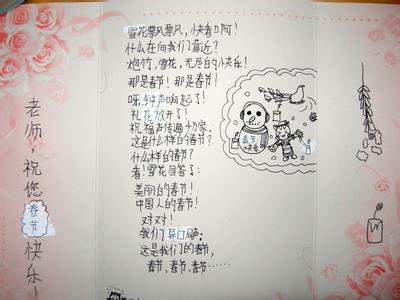 老师，祝您春节快乐！
雪花飘风飘风，快看啊！
什么在向我们靠近？
炮竹，雪花，无尽的快乐！
那是春节！那是春节！
呀，钟声响起了！
礼花放开了！
祝福声传遍千万家，
这是什么样的春节？
什么样的春节？
看！雪花回答了：
美丽的春节！
中国人的春节！
对对！
我们异口同声：
这是我们的春节，
春节，春节，春节……
春节
快乐